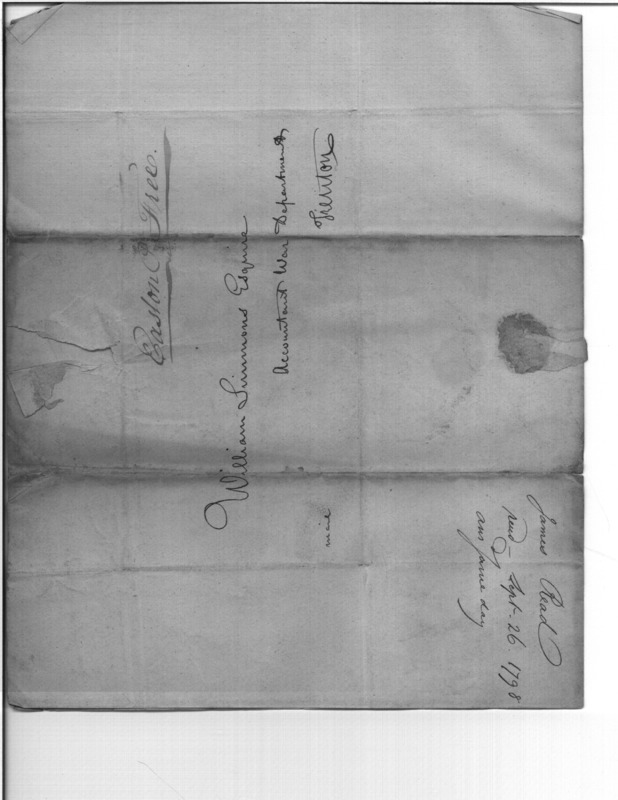 Easton & Free.
William Simmons Esquire
Accountant War Department
Trenton
mail
James Read
recd - Sept. 26. 1798
ans same day